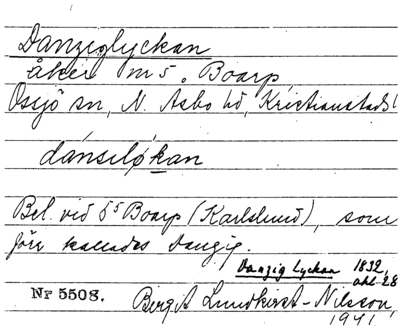 Danziglyckan
åker nr 5, Boarp,
Össjö sn, N. Åsbo hd, Kristianstads l
dánsiløkan
Bel. vid 5⁵ Boarp (Karlslund), som
förr kallades Danzig.
Danzig Lyckan 1832,
akt 28
Nr 5508. Birgit Lundkvist-Nilsson,
1941